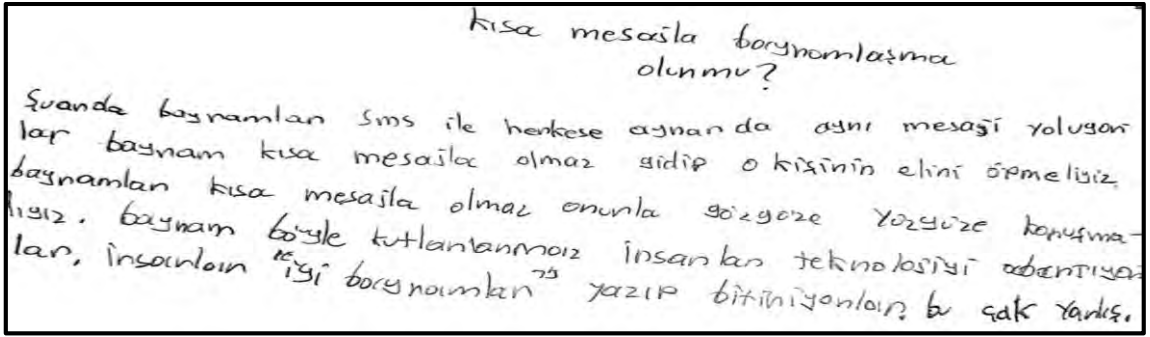 kısa mesajla bayramlaşma
olurmu?
Şuanda bayramlar sms ile herkese aynanda aynı mesajı yoluyor
lar bayram kısa mesajla olmaz gidip o kişinin elini öpmeliyiz.
bayramlar kısa mesajla olmaz onunla gözgöze yüzyüze konuşma-
lıyız. bayram böyle kutlanlanmaz insanlar teknolojiyi abartıyor
lar, insanlar "iyi bayramlar" yazıp bitiriyorlar, bu çok yanlış.